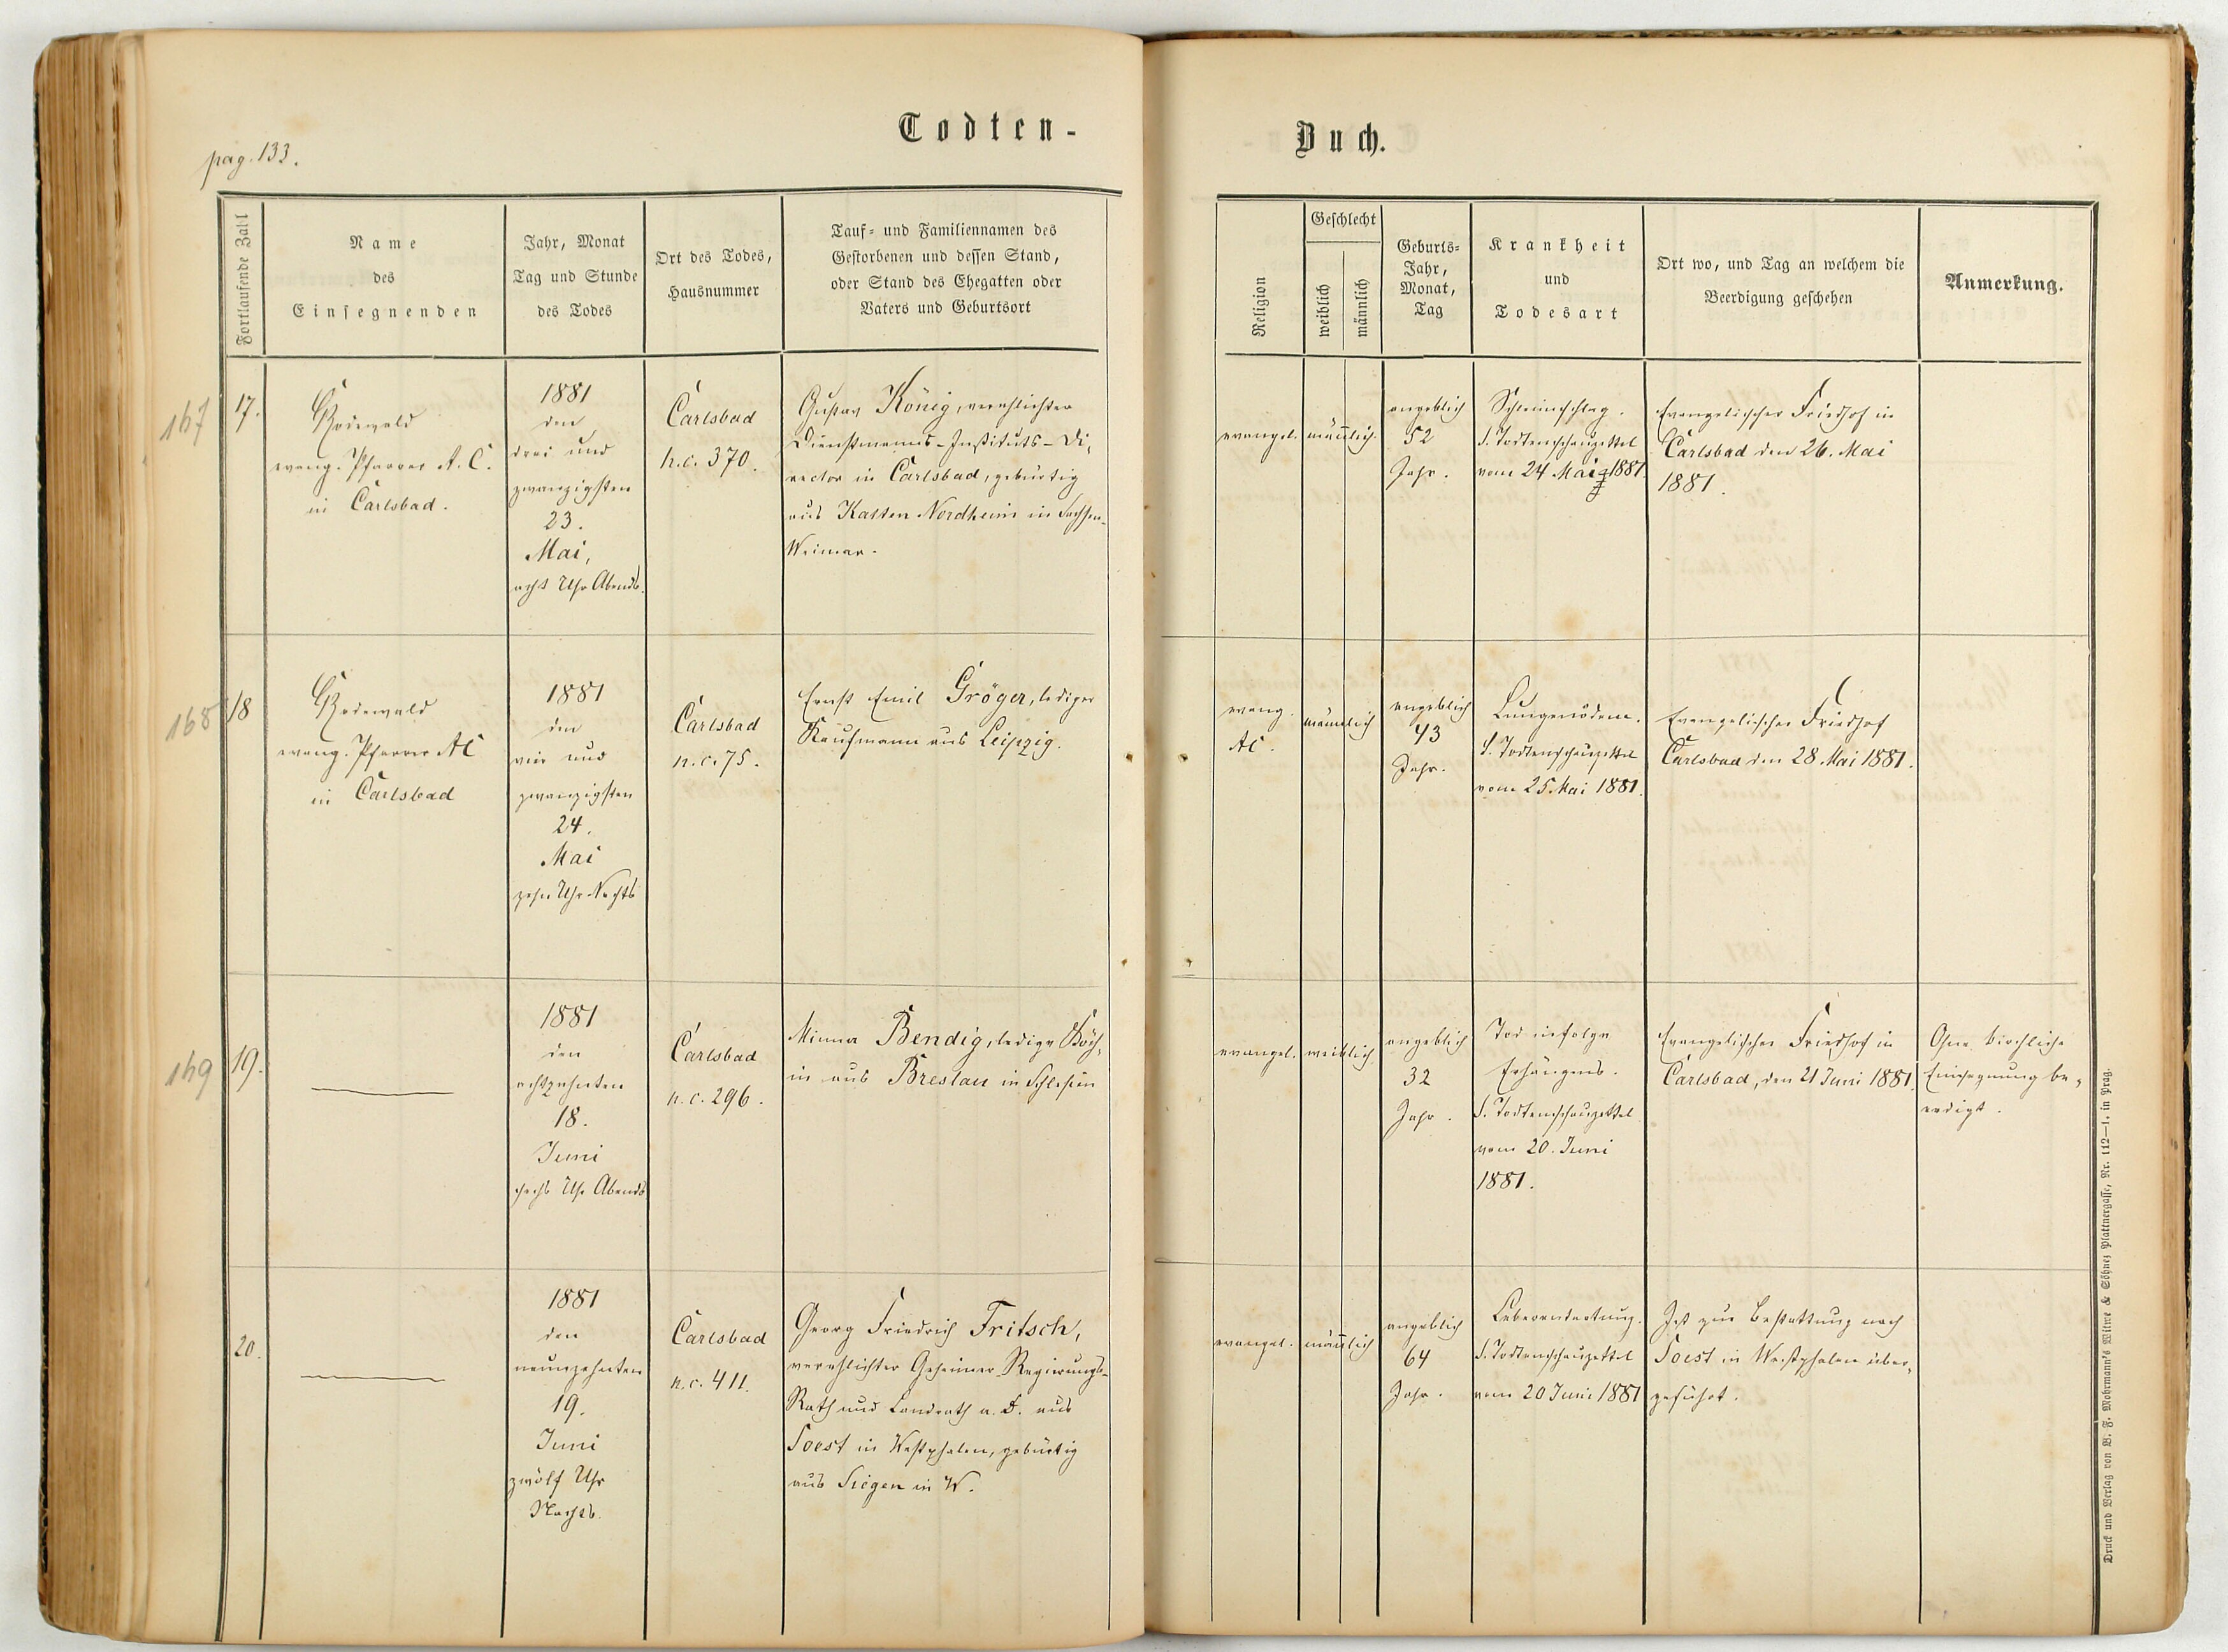 pag. 133.
Todten-
Buch.
Fortlaufende Zahl
Name
des
Einsegnenden
Jahr, Monat
Tag und Stunde
des Todes
Ort des Todes,
Hausnummer
Tauf- und Familiennamen des
Gestorbenen und dessen Stand,
oder Stand des Ehegatten oder
Vaters und Geburtsort
Religion
Geschlecht
weiblich
männlich
Geburts-
Jahr,
Monat,
Tag
Krankheit
und
Todesart
Ort wo, und Tag an welchem die
Beerdigung geschehen
Anmerkung.
167
17.
Rodewald
evang. Pfarrer A. C.
in Carlsbad.
1881
den
drei und
zwanzigsten
23.
Mai,
acht Uhr Abends.
Carlsbad
n.c. 370.
Gustav König, verehlichter
Dienstmanns-Instituts-Di-
rector in Carlsbad, gebürtig
aus Kalten Nordheim in Sachsen-
Weimar.
evangel.
männlich.
angeblich
52
Jahr.
S. Todtenschauzettel
vom 24 Mai 1881.
Evangelischer Friedhof in
Carlsbad den 26. Mai
1881.
168
18
Rodewald
evang. Pfarrer AC
in Carlsbad
1881
den
vier und
zwanzigsten
24.
Mai
zehn Uhr Nachts
Carlsbad
n.c. 75.
Ernst Emil Gröger, lediger
Kaufmann aus Leipzig.
evang.
AC.
männlich
angeblich
43
Jahr.
Lungenödem.
S. Todtenschauzettel
vom 25 Mai 1881.
Evangelischer Friedhof
Carlsbad den 28. Mai 1881.
169
19.
1881
den
achtzehnten
18.
Juni
sechs Uhr Abends
Carlsbad
n.c. 296.
Minna Bendig, ledige Köch-
in aus Breslau in Schlesien
evangel.
weiblich
angeblich
32
Jahr.
Tod infolge
Erhängens.
S. Todtenschauzettel
vom 20. Juni
1881.
Evangelischer Friedhof in
Carlsbad, den 21 Juni 1881.
Ohne kirchliche
Einsegnung be-
erdigt.
20.
1881
den
neunzehnten
19.
Juni
zwölf Uhr
Nachts.
Carlsbad
n.c. 411.
Georg Friedrich Fritsch,
verehlichter Geheimer Regierungs-
Rath und Landrath a. D. aus
Soest in Westphalen, gebürtig
aus Siegen in W.
evangel.
männlich
angeblich
64
Jahr.
Leberentartung.
S. Todtenschauzettel
vom 20 Juni 1881
Ist zur Bestattung nach
Soest in Westphalen über-
geführt.
Druck und Verlag von B. F. Mohrmann's Witwe & Söhne, Plattnergasse, Nr. 112—1. in Prag.